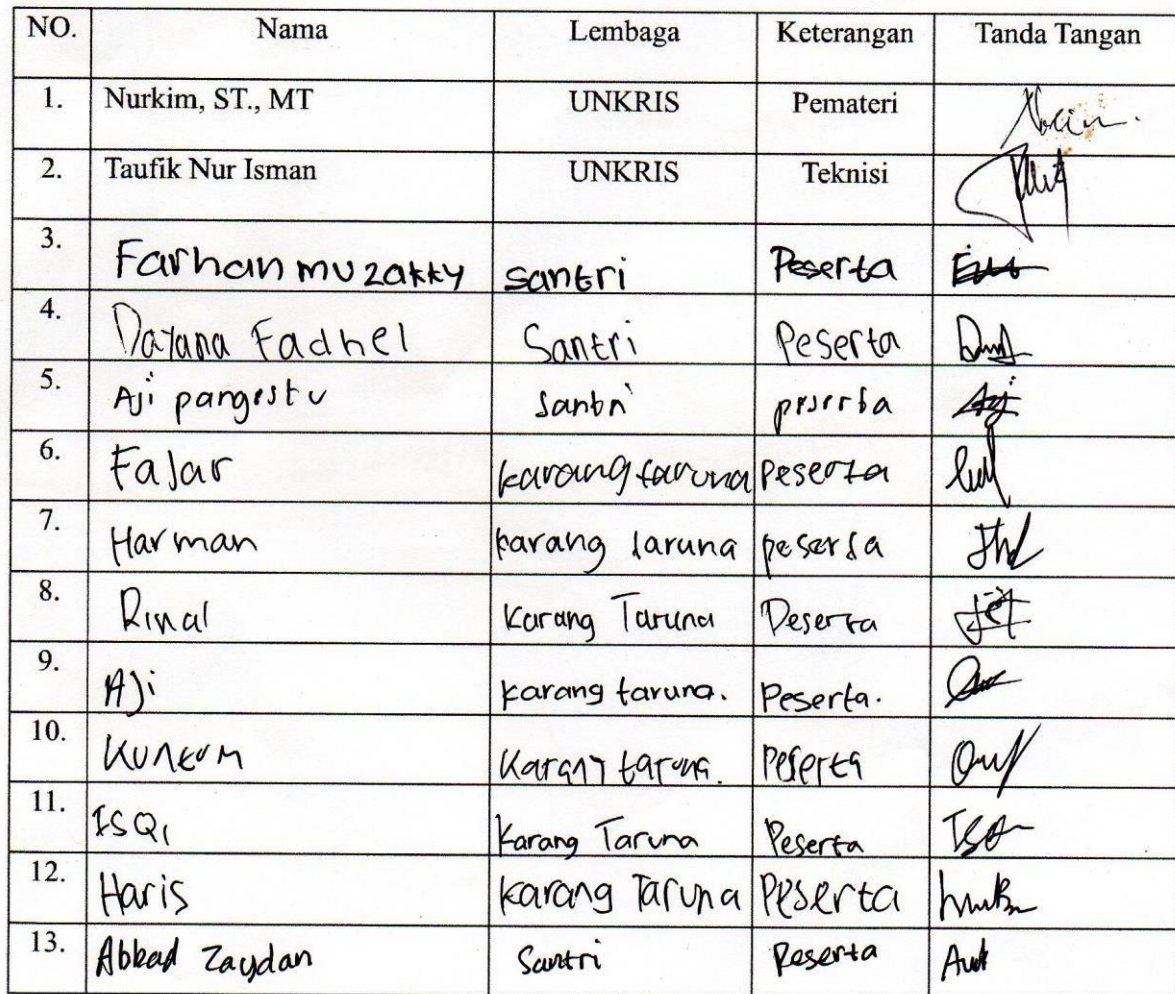 NO. Nama Lembaga Keterangan Tanda Tangan
1. Nurkim, ST., MT UNKRIS Pemateri
2. Taufik Nur Isman UNKRIS Teknisi
3. Farhan muzakky santri Peserta
4. Dayana Fadhel Santri Peserta
5. Aji pangestu santri peserta
6. Fajar karang taruna Peserta
7. Harman karang taruna peserta
8. Rinal Karang Taruna Peserta
9. Aji karang taruna. Peserta.
10. Kuntum Karang taruna. Peserta
11. ISQi Karang Taruna Peserta
12. Haris karang Taruna Peserta
13. Abbad Zaydan Santri Peserta